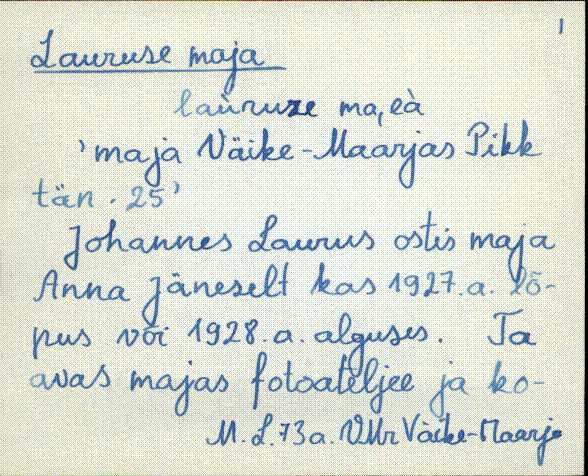 1
Lauruse maja
laùruze ma,eà
'maja Väike-Maarjas Pikk
tän. 25'
Johannes Laurus ostis maja
Anna Jäneselt kas 1927.a. lõ-
pus või 1928.a. alguses. Ta
avas majas fotoateljee ja ko-
M. L. 73a. VMr Väike-Maarja